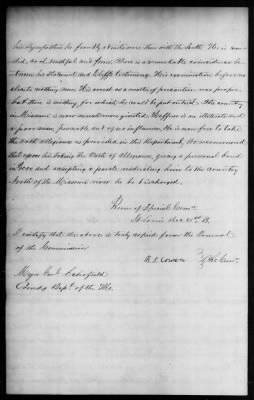 his sympathies he frankly admits were then with the South. He is now
ded, as all truthful and free. There is a remarkable coincidence be-
tween his statement and testimony. His examination before us
elicits nothing new. His arrest as a matter of precaution was proper
but there is nothing for which he could be put on trial. The country
in Missouri is now somewhat quieted. Huffine is an illiterate and
a poor man, peaceable, and of no influence. He is now free to take
the oath of allegiance as provided in this Department. We recommend
that upon his taking the Oath of Allegiance, giving a personal bond
in $1000 and accepting a parole restricting him to the country
North of the Missouri river he be discharged.
Room of Special Comn
St Louis Dec 21st 63.
I certify that the above is truly copied from the Journal
of the Commission
R. S. Cowen
Majr Genl Schofield
Comdg Dept of the Mo.